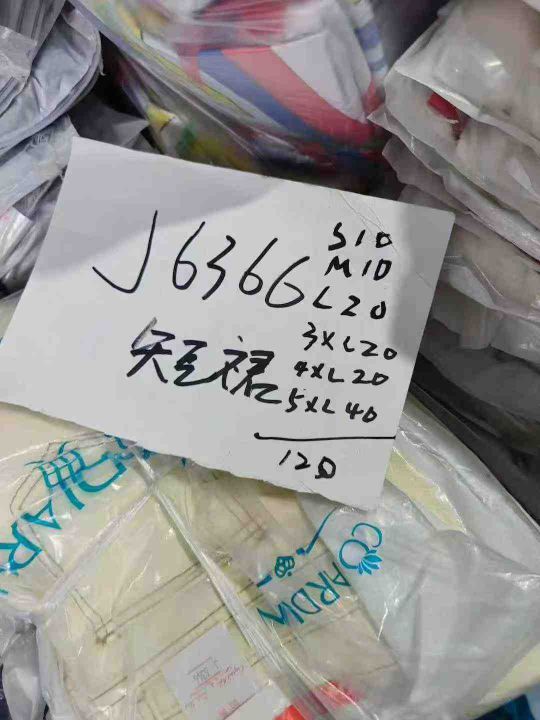 J6366
短裙
S10
M10
L20
3XL20
4XL20
5XL40
120
COARDIW